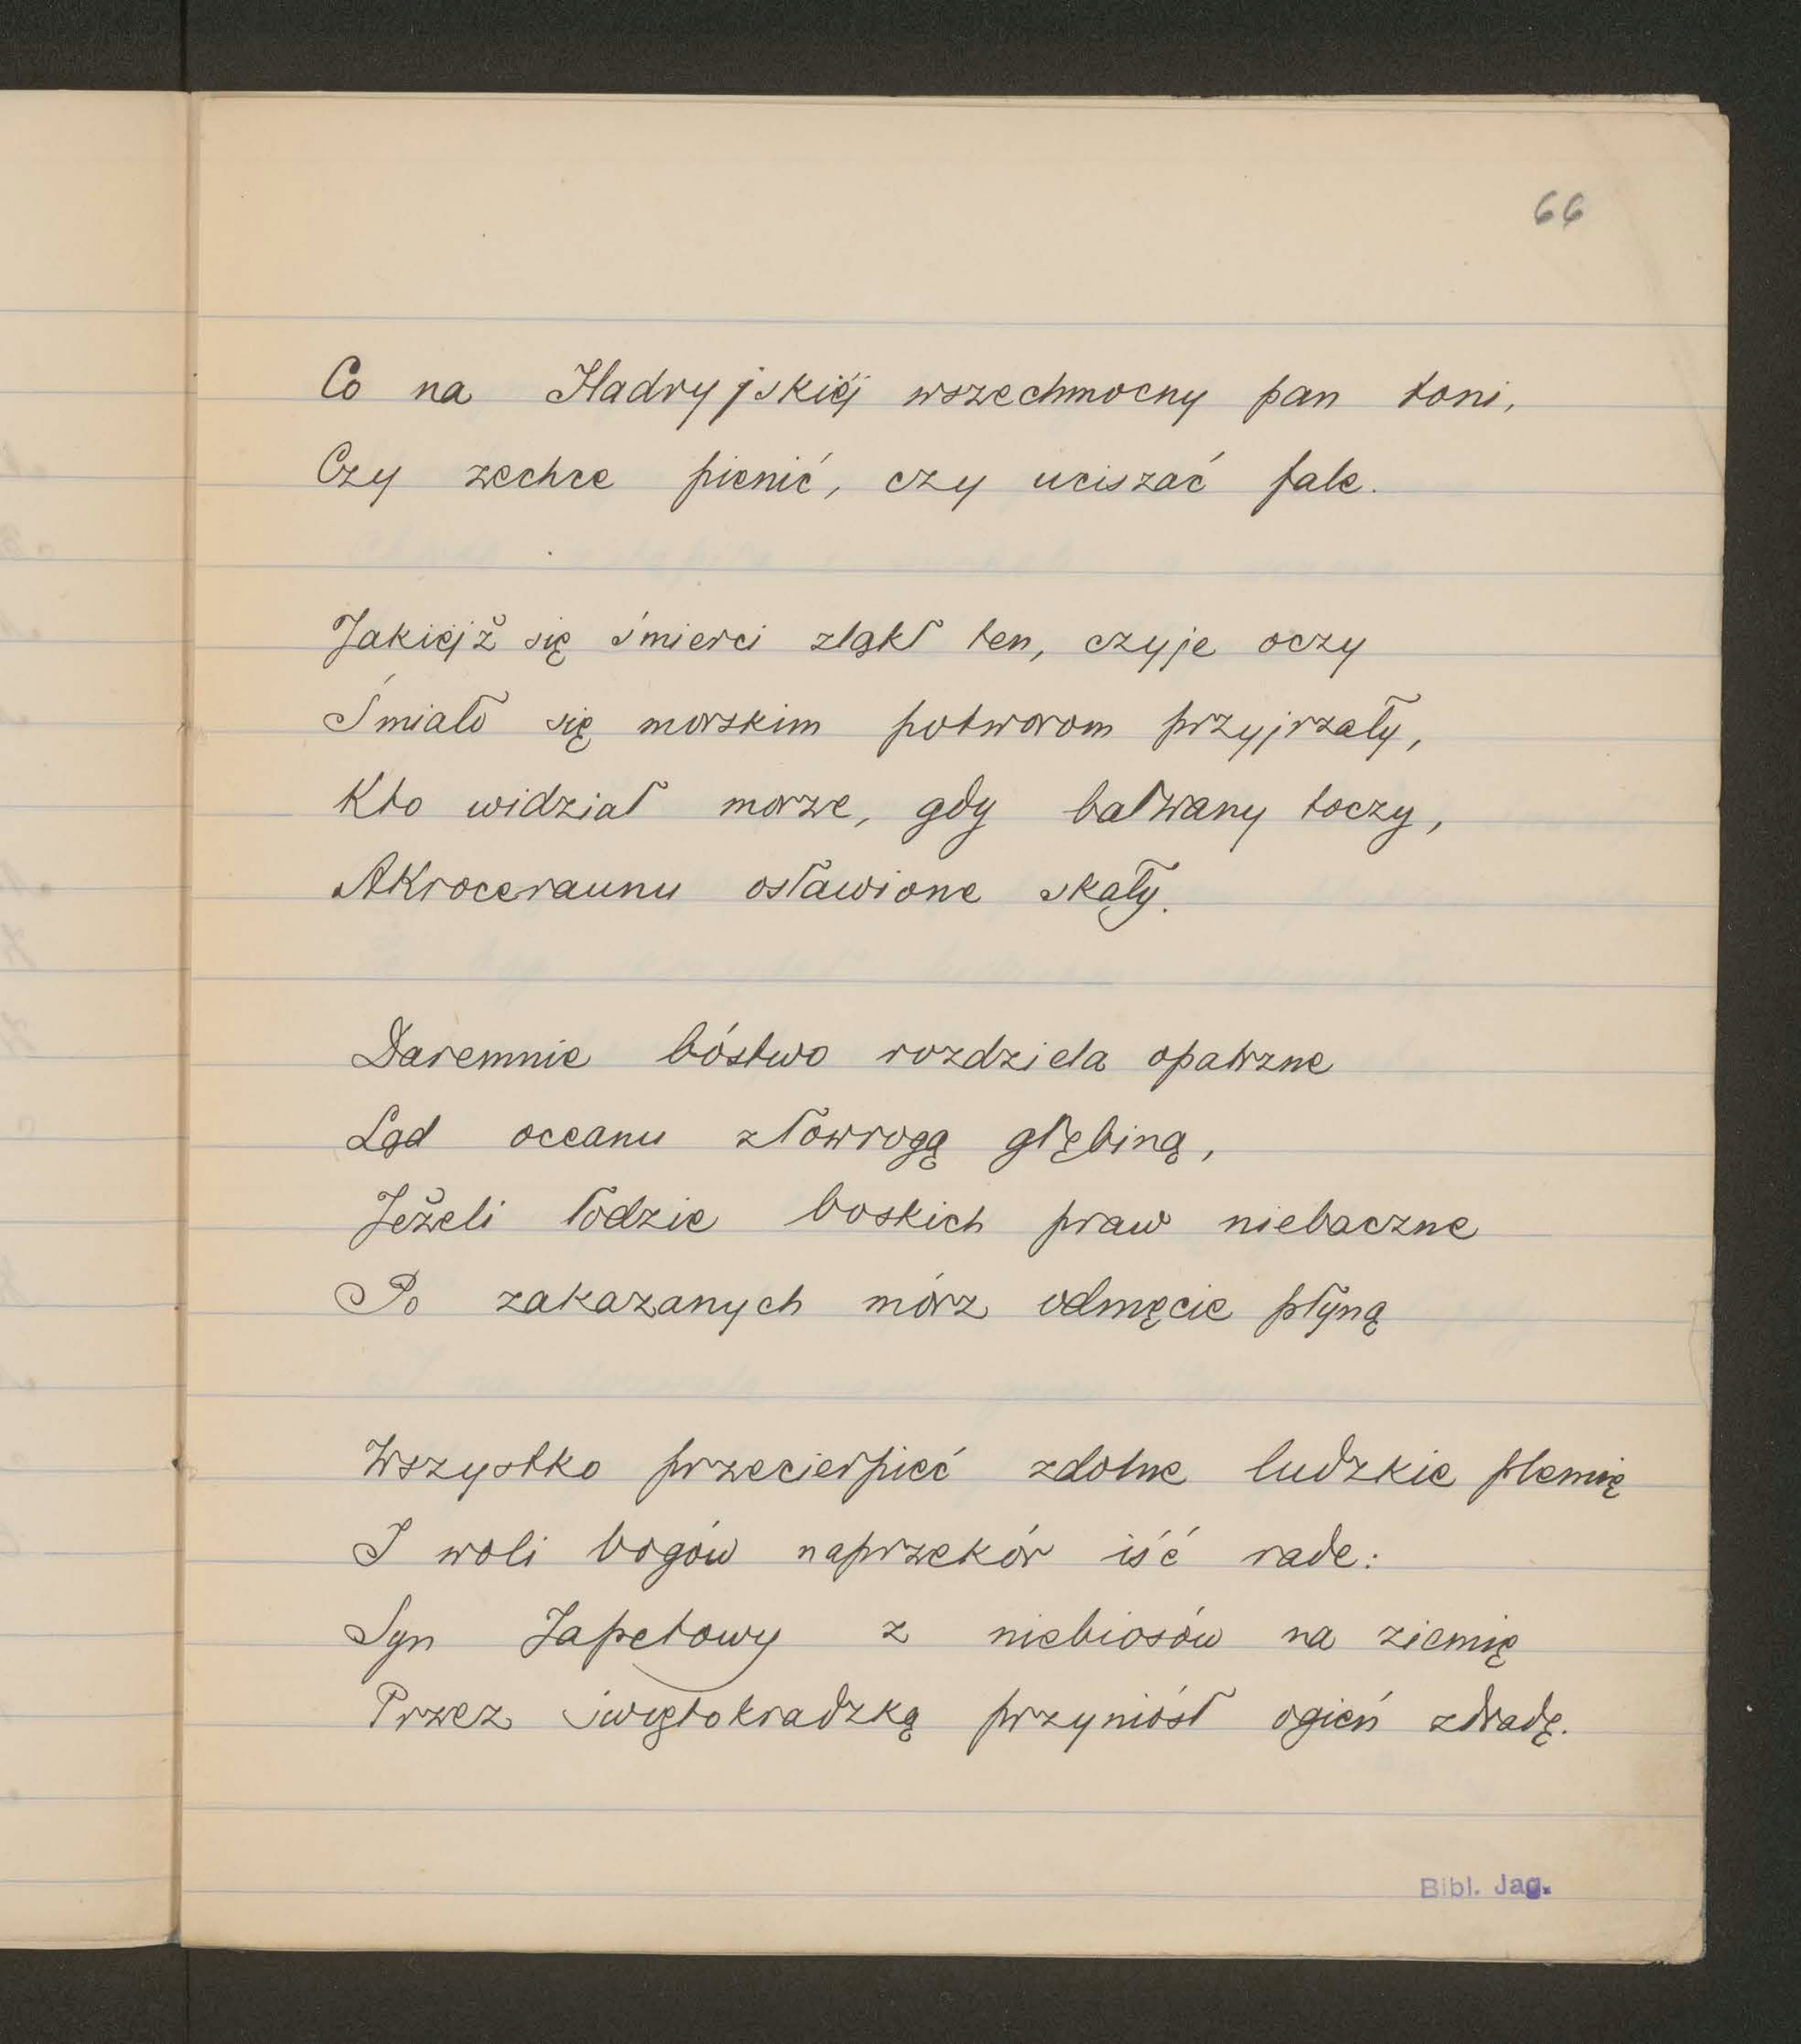 66
Co na Hadryjskiéj wszechmocny pan toni,
Czy zechce pienić, czy uciszać fale.
Jakiéjż się śmierci zląkł ten, czyje oczy
Śmiało się morskim potworom przyjrzały,
Kto widział morze, gdy bałwany toczy,
Akroceraunu osławione skały.
Daremnie bóstwo rozdziela opatrzne
Ląd oceanu złowrogą głębiną,
Jeżeli łodzie boskich praw niebaczne
Po zakazanych mórz odmęcie płyną
Wszystko przecierpieć zdolne ludzkie plemię
I woli bogów naprzekór iść rade:
Syn Japetowy z niebiosów na ziemię
Przez świętokradzką przyniósł ogień zdradę.
Bibl. Jag.